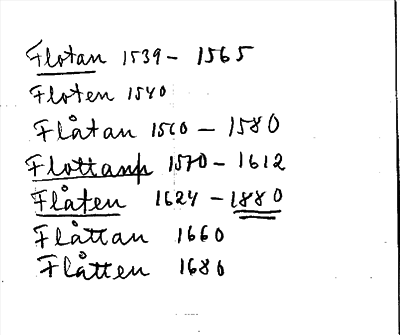 Flotan 1539 - 1565
Floten 1540
Flåtan 1560 - 1580
Flottanp 1570 - 1612
Flåten 1624 - 1880
Flåttan 1660
Flåtten 1686